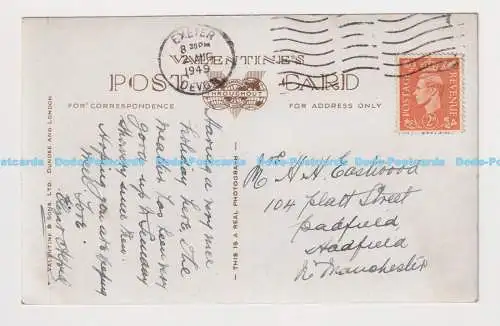 EXETER
8 30PM
2 AUG
1949
DEVON
VALENTINE'S
POST CARD
THROUGHOUT
FOR CORRESPONDENCE
FOR ADDRESS ONLY
POSTAGE
REVENUE
2D
VALENTINE & SONS, LTD. DUNDEE AND LONDON
THIS IS A REAL PHOTOGRAPH
Having a very nice
holiday here. The
weather has been very
good up to Sunday
Showery since then.
Hoping you are keeping
well
Love.
M H. H. Eastwood
104 Platt Street
Padfield
Hadfield
Nr Manchester
Dodo-Postcards Dodo-Postcards Dodo-Postcards Dodo-Postcards